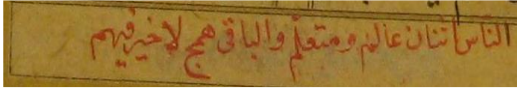 الناس اثنان عالم ومتعلم والباقى همج لا خير فيهم